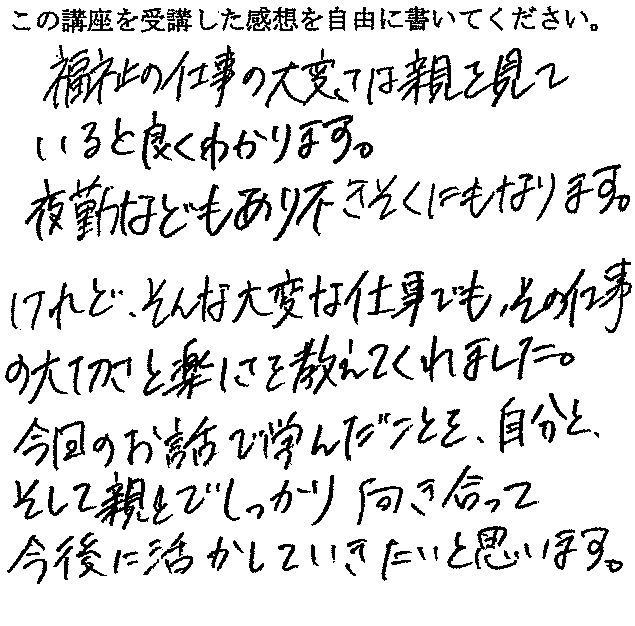 この講座を受講した感想を自由に書いてください。
福祉の仕事の大変さは親を見て
いると良くわかります。
夜勤などもあり不きそくにもなります。
けれど、そんな大変な仕事でも、その仕事
の大切さと楽しさを教えてくれました。
今回のお話で学んだことを、自分と、
そして親とでしっかり向き合って
今後に活かしていきたいと思います。